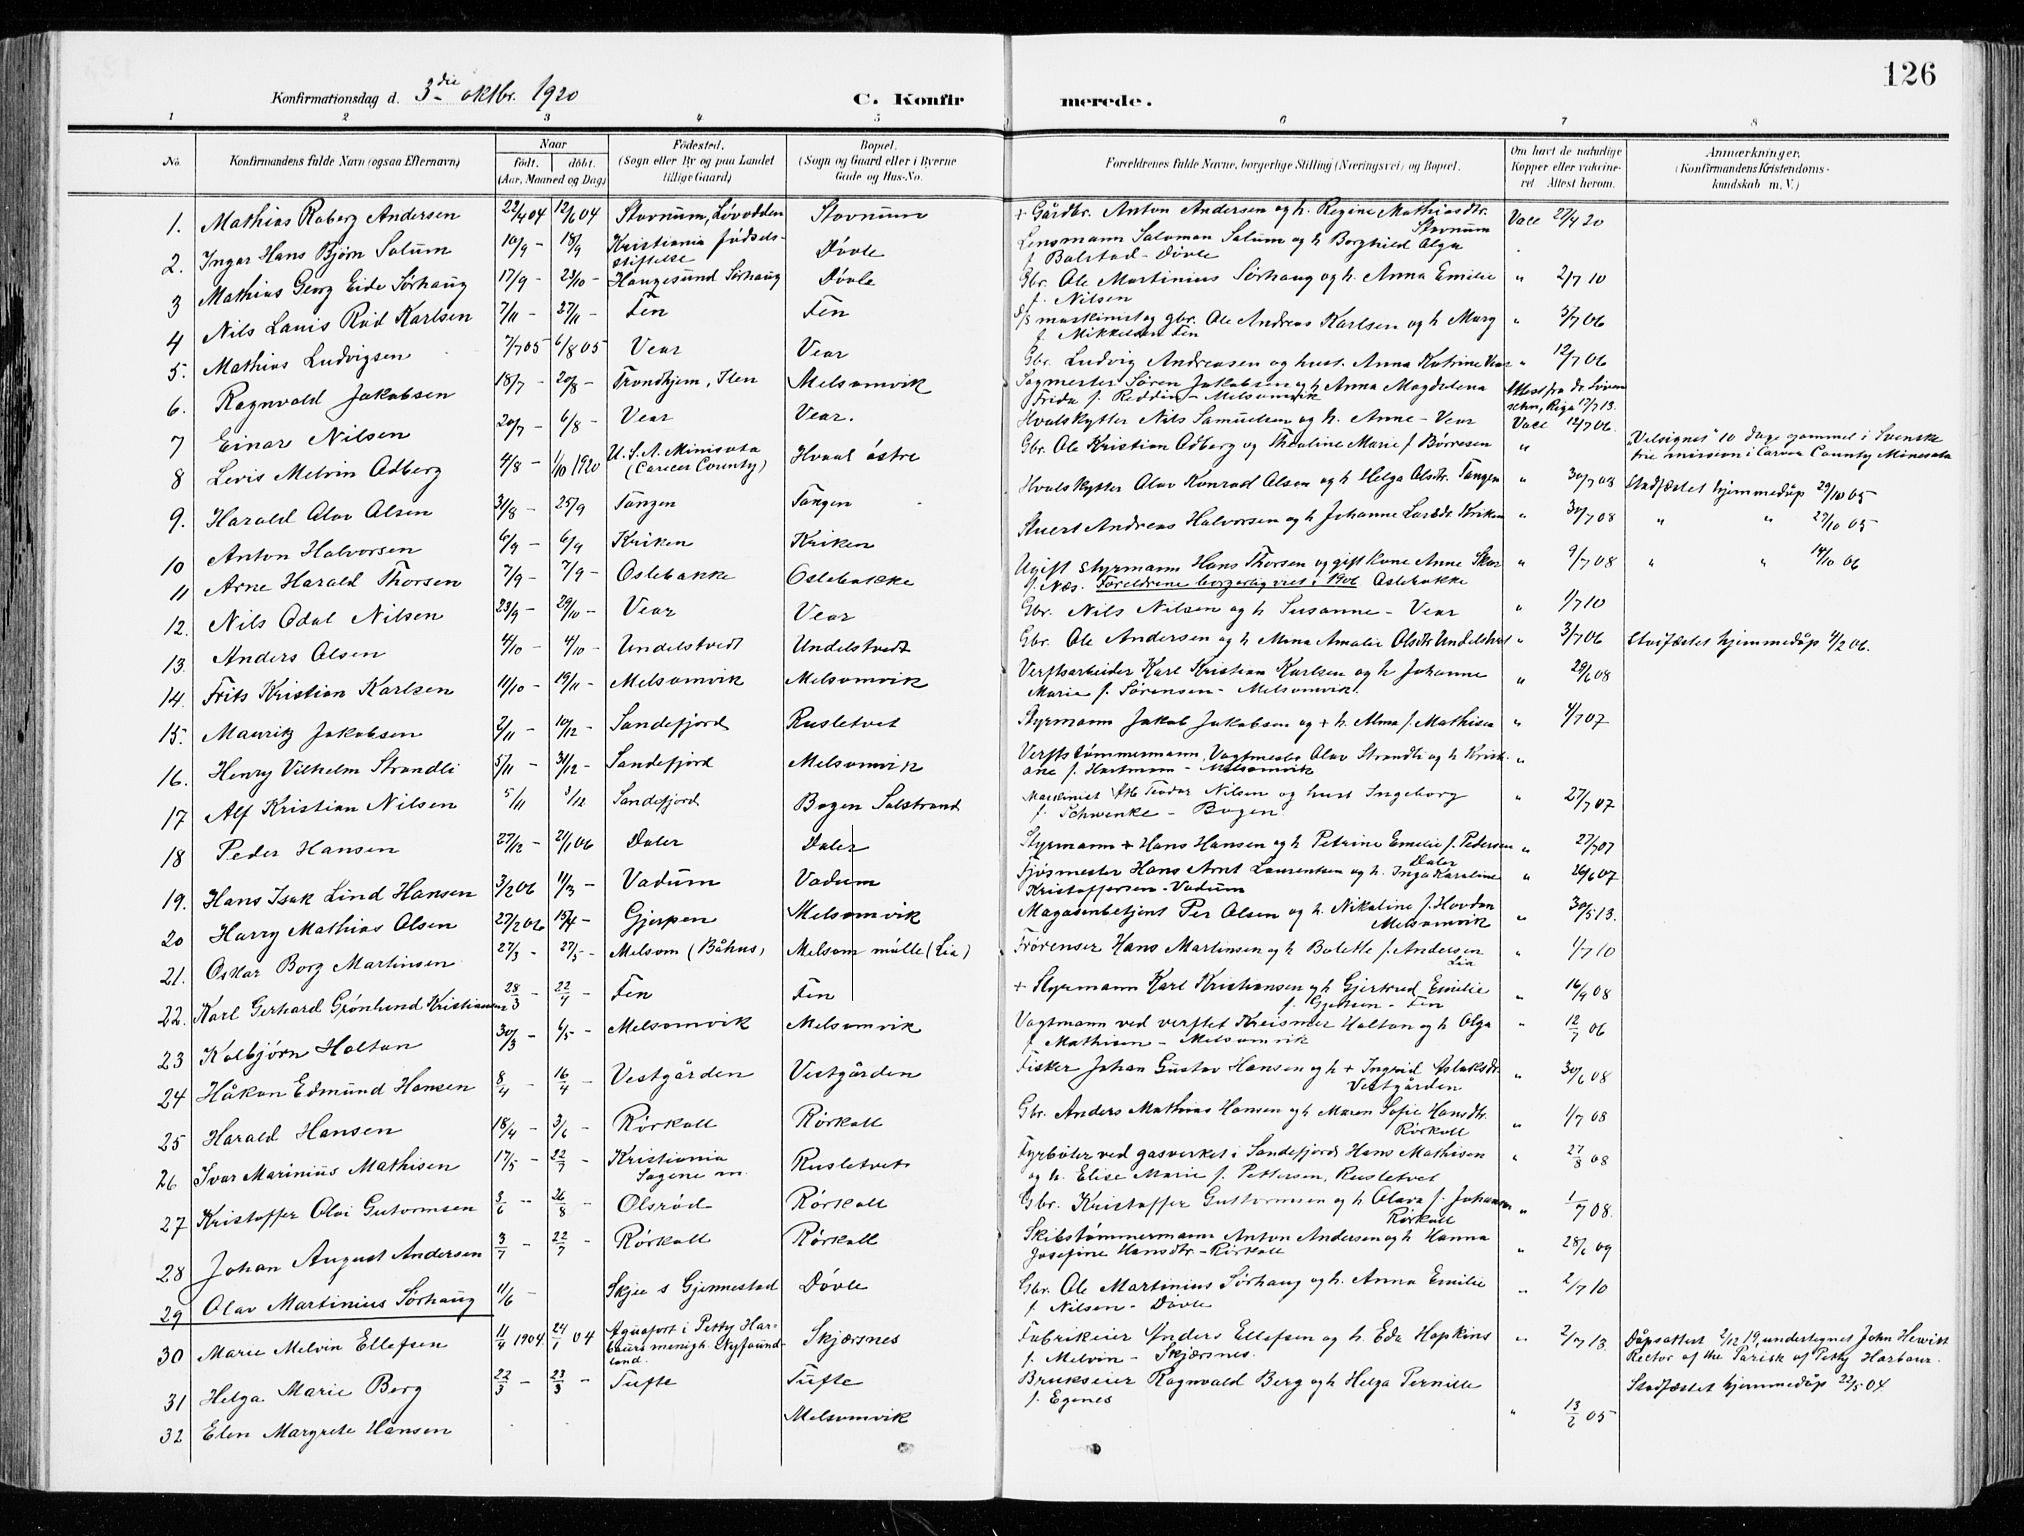 126
Konfirmationsdag d. 3die oktbr. 1920
C. Konfirmerede.
1 2 3 4 5 6 7 8
No. Konfirmandens fulde Navn (ogsaa Efternavn) Naar født. døbt. (Aar, Maaned og Dag) Fødested. (Sogn eller By og paa Landet tillige Gaard) Bopæl. (Sogn og Gaard eller i Byerne Gade og Hus-No. Forældrenes fulde Navne, borgerlige Stilling (Næringsvei) og Bopæl. Om havt de naturlige Kopper eller vakcineret Attest herom. Anmærkninger. (Konfirmandens Kristendomskundskab m. V.)
1. Mathias Roberg Andersen 22/4 04 12/6 04 Stovnum, Løvodden Stovnum + Gårdbr. Anton Andersen og h. Regine Mathiasdtr. Stovnum Vacc 27/7 20
2. Ingar Hans Bjørn Solum 10/9 – 18/9 Kristiania fødselsstiftelse Døvle Lensmann Salomon Solum og h Borghild Olga f. Bolstad – Døvle
3 Mathias Georg Eide Sørhaug 17/9 – 23/10 – Haugesund Sørhaug Døvle Gbr. Ole Martinius Sørhaug og h. Anna Emilie f. Nilsen " 2/7 10
4 Nils Lauis Rød Karlsen 7/11 – 27/11 – Fen Fen S/S maskinist og gbr. Ole Andreas Karlsen og h Marg f. Mikkelsen Fen " 3/7 06
5. Mathias Ludvigsen 7/7 05 6/8 05 Vear Vear Gbr. Ludvig Andreasen og hust. Anna Katrine Vear " 12/7 06
6. Ragnvald Jakobsen 18/7 – 20/8 – Trondhjem, Ilen Melsomvik Sagmester Søren Jakobsen og h Anna Magdelena Frida f. Reddin – Melsomvik Attest fra dr. Løvensehn, Riga 17/7 13.
7 Einar Nilsen 20/7 – 6/8 – Vear Vear. Hvalskytter Nils Samuelsen og h. Anne – Vear Vacc 12/7 06.
8 Levis Melvin Odberg 4/8 – 1/10 1920 U.S.A. Minisota (Carver County) Hvaal østre Gbr. Ole Kristian Odberg og Theoline Marie f. Børresen " "Velsignet" 10 dage gammel i Svenske frie mission i Carver County Minesota
9. Harald Olav Olsen 31/8 – 25/9 Tangen Tangen Hvalskytter Olav Konrad Olsen og h Helga Olsdtr. Tangen " 30/7 08 Stadfæstet hjemmedåp 29/10 05
10 Anton Halvorsen 6/9 – 6/9 Kriken Kriken Stuert Andreas Halvorsen og h Johanne Larsdtr. Kriken " 30/7 08 " " 27/10 05
11 Arne Harald Thorsen 7/9 – 7/9 – Oslebakke Oslebakke Ugift Styrmann Hans Thorsen og gift kone Anne Skar f. Næs. Foreldrene borgerlig viet i 1906 Oslebakke " 9/7 08 " " 14/10 06
12. Nils Odal Nilsen 23/9 – 29/10 – Vear Vear Gbr. Nils Nilsen og h Susanne – Vear " 1/7 10
13. Anders Olsen 4/10 – 4/10 – Undelstvedt Undelstvedt Gbr. Ole Andersen og h Mina Amalie Olsdtr. Undelstvedt " 3/7 06 Stadfæstet hjemmedåp 4/2 06.
14. Frits Kristian Karlsen 11/10 – 19/11 – Melsomvik Melsomvik Verftsarbeider Karl Kristian Karlsen og h Johanne Marie f. Sørensen – Melsomvik. " 29/6 08
15. Mauritz Jakobsen 2/11 – 10/12 – Sandefjord Rusletvet Styrmann Jakob Jakobsen og + h. Alma f. Mathisen " 4/7 07
16. Henry Vilhelm Strandli 5/11 – 31/12 – Sandefjord Melsomvik Verftstømmermann, Vagtmester Olav Strandli og h Kristiane f. Hartmann – Melsomvik "
17 Alf Kristian Nilsen 5/11 3/12 Sandefjord Bogen Solstrand Maskinist Teodor Nilsen og hust Ingeborg f. Schwenke – Bogen " 27/7 07
18 Peder Hansen 27/12 – 21/1 06 Daler Daler Styrmann + Hans Hansen og h Petrine Emelie f. Pedersen Daler " 27/7 07
19. Hans Isak Lind Hansen 3/2 06 11/3 – Vadum Vadum Fjøsmester Hans Arnt Laurentsen og h. Inga Karoline Kristoffersen – Vadum " 26/6 07
20 Harry Mathias Olsen 27/2 06 15/4 – Gjerpen Melsomvik Magasenbetjent Per Olsen og h. Nikoline f. Hovdan Melsomvik " 30/5 13.
21. Oskar Borg Martinsen 27/3 – 27/5 – Melsom (Båhus) Melsom mølle (Lia) Frørenser Hans Martinsen og h Bolette f. Andersen Lia " 1/7 10
22. Karl Gerhard Grønlund Kristiansen 28/3 – 22/4 – Fen Fen + Styrmann Karl Kristiansen og h Gjertrud Emilie f. Gjertsen – Fen " 16/9 08
23 Kolbjørn Holtan 30/3 – 6/5 – Melsomvik Melsomvik Vagtmann ved verftet Kreismer Holtan og h Olga f. Mathisen – Melsomvik " 12/7 06
24 Håkon Edmund Hansen 8/4 – 16/4 – Vestgården Vestgården Fisker Johan Gustav Hansen og h + Ingrid Aslaksdtr. Vestgården " 30/6 08
25 Harald Hansen 18/4 – 3/6 – Rørkoll Rørkoll Gbr. Anders Mathias Hansen og h Maren Sofie Hansdtr. Rørkoll " 1/7 08
26 Ivar Marinius Mathisen 17/5 – 22/7 – Kristiania Sagene m. Rusletvet Fyrbøter ved gasverket i Sandefjord Hans Mathisen og h. Elise Marie f. Pettersen, Rusletvet " 27/8 08
27 Kristoffer Olai Gutormsen 3/6 – 26/8 – Olsrød Rørkoll Gbr. Kristoffer Guttormsen og h Olava f. Johansen Rørkoll " 1/7 08.
28 Johan August Andersen 3/7 – 22/7 – Rørkoll Rørkoll Skibstømmermann Anton Andersen og h Hanna Josefine Hansdtr – Rørkoll " 28/6 09
29 Olav Martinius Sørhaug 11/6 – Skjee s Gjennestad Døvle Gbr. Ole Martinius Sørhaug og h. Anna Emilie f. Nilsen – Døvle " 2/7 10
30 Marie Melvin Ellefsen 11/4 1904 24/1 04 Aquafort i Petty Harbours menigh. Nyfoundland. Skjærsnes Fabrikeier Anders Ellefsen og h. Eda Hopkins f. Melvin – Skjærsnes. " 2/7 13. Dåpsattest 2/12 19, undertegnet John Hewitt Rector of the Parish of Petty Harbour.
31 Helga Marie Berg 22/3 – 23/3 – Tufte Tufte Brukseier Ragnvald Berg og h Helga Pernille f. Egenes Stadfæstet hjemmedåp 22/5 04
32 Elen Margrete Hansen Melsomvik " 13/6 05